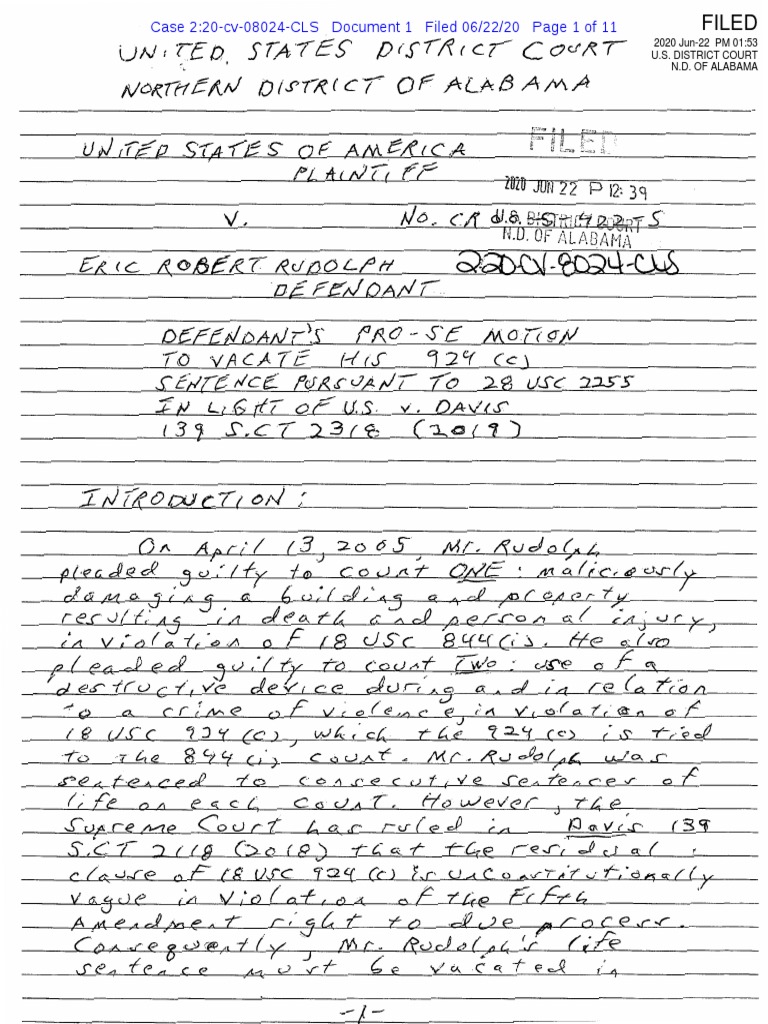 Case 2:20-cv-08024-CLS Document 1 Filed 06/22/20 Page 1 of 11
FILED
2020 Jun-22 PM 01:53
U.S. DISTRICT COURT
N.D. OF ALABAMA
UNITED STATES DISTRICT COURT
NORTHERN DISTRICT OF ALABAMA
UNITED STATES OF AMERICA
PLAINTIFF
FILED
2020 JUN 22 P 12:39
V. No. CR S
U.S. DISTRICT COURT
N.D. OF ALABAMA
ERIC ROBERT RUDOLPH 2:20-CV-8024-CLS
DEFENDANT
DEFENDANT'S PRO-SE MOTION
TO VACATE HIS 924 (c)
SENTENCE PURSUANT TO 28 USC 2255
IN LIGHT OF U.S. v. DAVIS
139 S.CT 2318 (2019)
INTRODUCTION:
On April 13, 2005, Mr. Rudolph
pleaded guilty to count ONE: maliciously
damaging a building and property
resulting in death and personal injury,
in violation of 18 USC 844(i). He also
pleaded guilty to count Two: use of a
destructive device during and in relation
to a crime of violence, in violation of
18 USC 924 (c), which the 924 (c) is tied
to the 844 (i) count. Mr. Rudolph was
sentenced to consecutive sentences of
life on each count. However, the
Supreme Court has ruled in Davis 139
S.CT 2118 (2018) that the residual
clause of 18 USC 924 (c) is unconstitutionally
vague in violation of the Fifth
Amendment right to due process.
Consequently, Mr. Rudolph's life
sentence must be vacated in
-1-